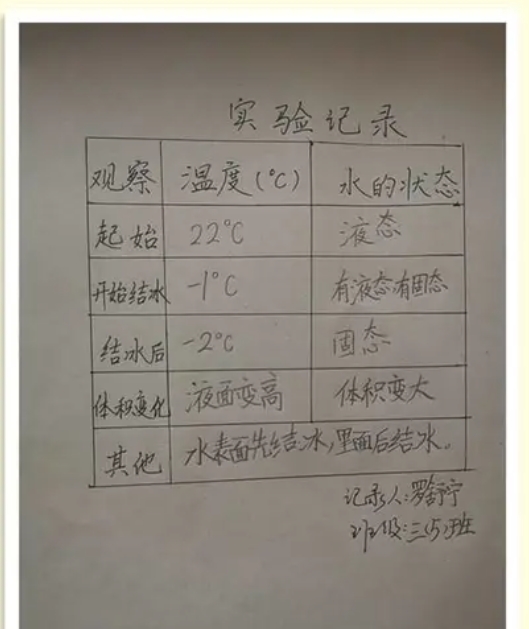 实验记录
观察 温度(°C) 水的状态
起始 22°C 液态
开始结冰 -1°C 有液态有固态
结冰后 -2°C 固态
体积变化 液面变高 体积变大
其他 水表面先结冰,里面后结冰。
记录人:罗
班级:三(5)班